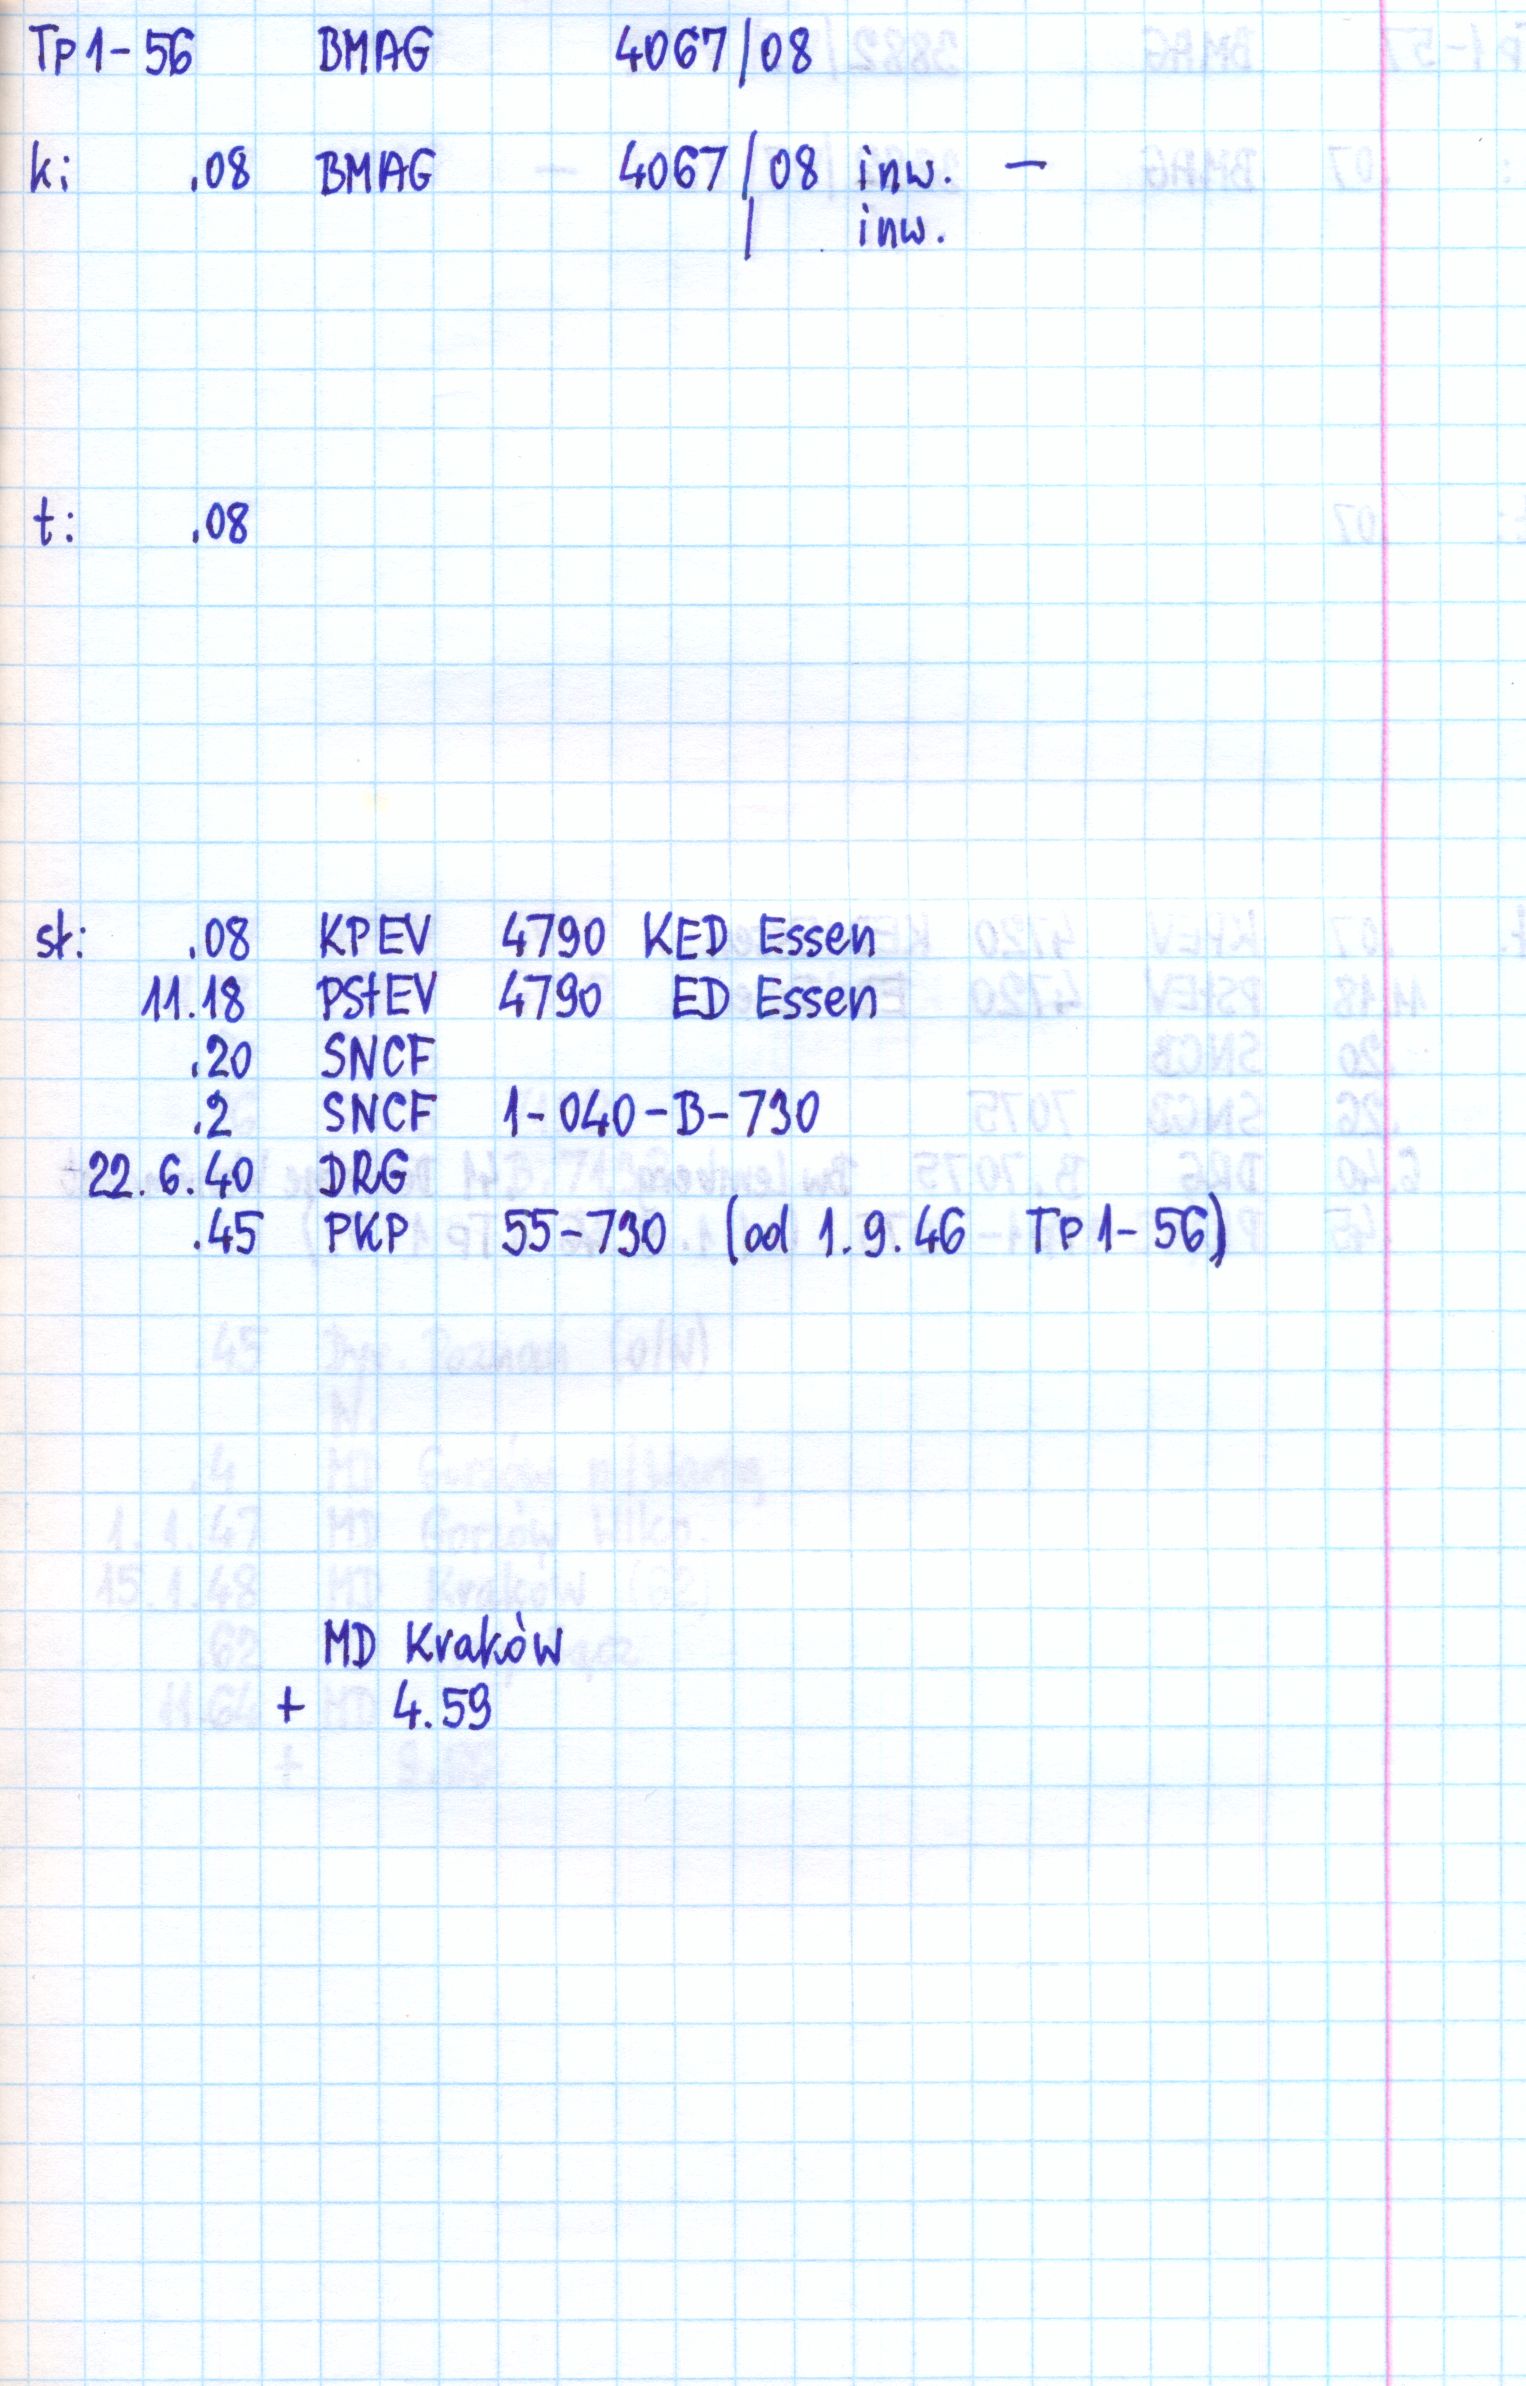 Tp1-56 BMAG 4067/08
k: .08 BMAG 4067/08 inw. –
/ inw.
t: .08
st: .08 KPEV 4790 KED Essen
11.18 PStEV 4790 ED Essen
.20 SNCF
.2 SNCF 1-040-B-730
22.6.40 DRG
.45 PKP 55-730 (od 1.9.46 Tp1-56)
MD Kraków
+ 4.59